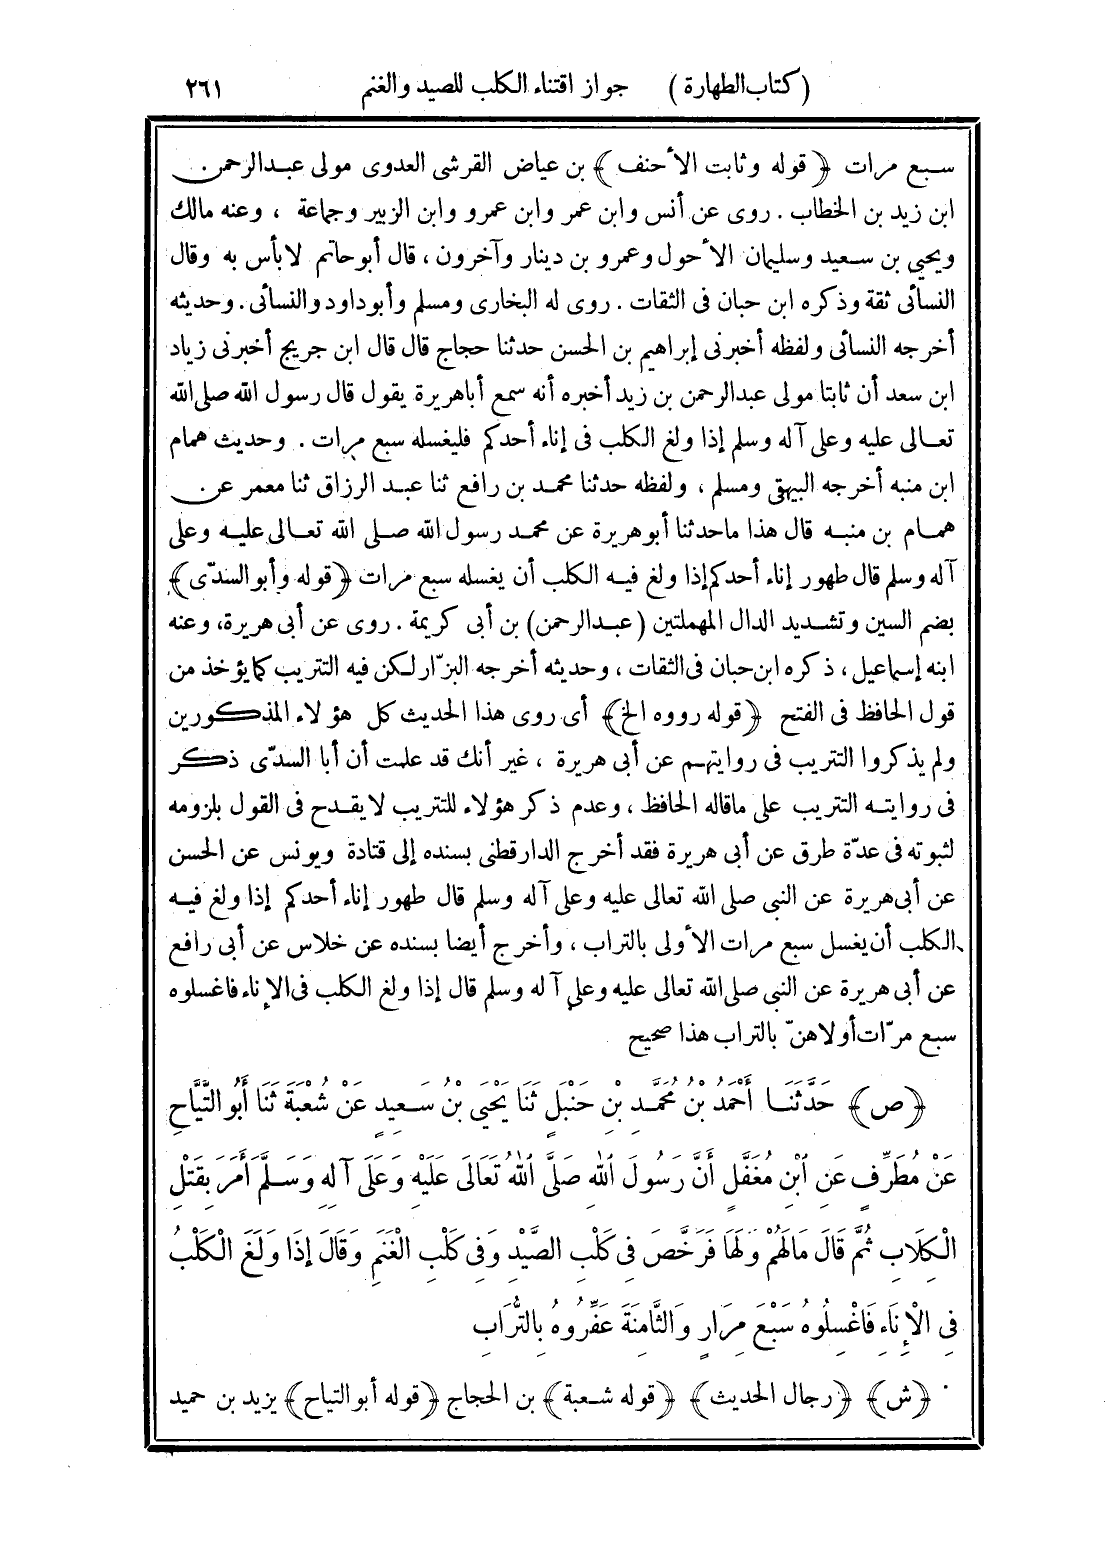 (كتاب الطهارة) جواز اقتناء الكلب للصيد والغنم ٢٦١
سبع مرات ﴿قوله وثابت الأحنف﴾ بن عياض القرشى العدوى مولى عبدالرحمن
ابن زيد بن الخطاب . روى عن أنس وابن عمر وابن عمرو وابن الزبير وجماعة ، وعنه مالك
ويحيى بن سعيد وسليمان الأحول وعمرو بن دينار وآخرون ، قال أبوحاتم لابأس به وقال
النسائى ثقة وذكره ابن حبان فى الثقات . روى له البخارى ومسلم وأبوداود والنسائى . وحديثه
أخرجه النسائى ولفظه أخبرنى إبراهيم بن الحسن حدثنا حجاج قال قال ابن جريج أخبرنى زياد
ابن سعد أن ثابتا مولى عبدالرحمن بن زيد أخبره أنه سمع أباهريرة يقول قال رسول الله صلى الله
تعالى عليه وعلى آله وسلم إذا ولغ الكلب فى إناء أحدكم فليغسله سبع مرات . وحديث همام
ابن منبه أخرجه البيهقى ومسلم ، ولفظه حدثنا محمد بن رافع ثنا عبد الرزاق ثنا معمر عن
همام بن منبه قال هذا ماحدثنا أبوهريرة عن محمد رسول الله صلى الله تعالى عليه وعلى
آله وسلم قال طهور إناء أحدكم إذا ولغ فيه الكلب أن يغسله سبع مرات ﴿قوله وأبو السدّى﴾
بضم السين وتشديد الدال المهملتين (عبدالرحمن) بن أبى كريمة . روى عن أبى هريرة، وعنه
ابنه إسماعيل ، ذكره ابن حبان فى الثقات ، وحديثه أخرجه البزّار لكن فيه التتريب كما يؤخذ من
قول الحافظ فى الفتح ﴿قوله رووه الخ﴾ أى روى هذا الحديث كل هؤلاء المذكورين
ولم يذكروا التتريب فى روايتهم عن أبى هريرة ، غير أنك قد علمت أن أبا السدّى ذكر
فى روايته التتريب على ماقاله الحافظ ، وعدم ذكر هؤلاء للتتريب لايقدح فى القول بلزومه
لثبوته فى عدّة طرق عن أبى هريرة فقد أخرج الدارقطنى بسنده إلى قتادة ويونس عن الحسن
عن أبى هريرة عن النبى صلى الله تعالى عليه وعلى آله وسلم قال طهور إناء أحدكم إذا ولغ فيه
الكلب أن يغسل سبع مرات الأولى بالتراب ، وأخرج أيضا بسنده عن خلاس عن أبى رافع
عن أبى هريرة عن النبى صلى الله تعالى عليه وعلى آله وسلم قال إذا ولغ الكلب فى الإناء فاغسلوه
سبع مرّات أولاهنّ بالتراب هذا صحيح
﴿ص﴾ حَدَّثَنَا أَحْمَدُ بْنُ مُحَمَّدِ بْنِ حَنْبَلٍ ثَنَا يَحْيَى بْنُ سَعِيدٍ عَنْ شُعْبَةَ ثَنَا أَبُو التَّيَّاحِ
عَنْ مُطَرِّفٍ عَنِ ابْنِ مُغَفَّلٍ أَنَّ رَسُولَ اللهِ صَلَّى اللهُ تَعَالَى عَلَيْهِ وَعَلَى آلِهِ وَسَلَّمَ أَمَرَ بِقَتْلِ
الْكِلَابِ ثُمَّ قَالَ مَالَهُمْ وَلَهَا فَرَخَّصَ فِى كَلْبِ الصَّيْدِ وَفِى كَلْبِ الْغَنَمِ وَقَالَ إِذَا وَلَغَ الْكَلْبُ
فِى الْإِنَاءِ فَاغْسِلُوهُ سَبْعَ مِرَارٍ وَالثَّامِنَةَ عَفِّرُوهُ بِالتُّرَابِ
﴿ش﴾ ﴿رجال الحديث﴾ ﴿قوله شعبة﴾ بن الحجاج ﴿قوله أبو التياح﴾ يزيد بن حميد